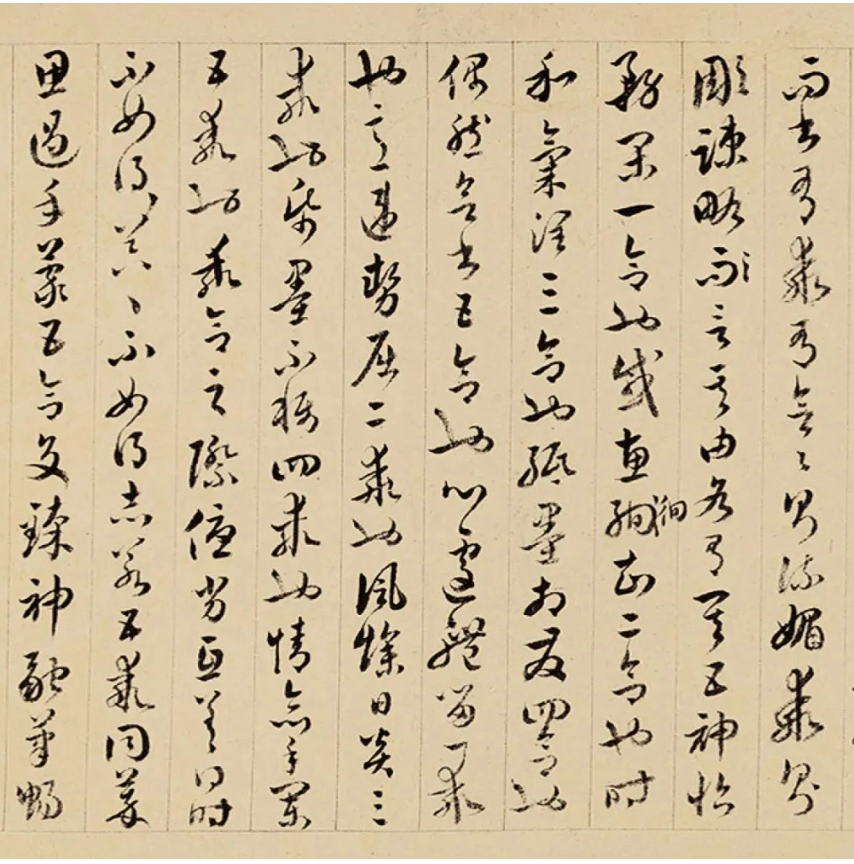 而書有乖有合々則流媚乖則
彫疎略而言其由各有其五神怡
務閑一合也感惠徇知二合也時
和氣潤三合也紙墨相發四合也
偶然欲書五合也心遽體留一乖
也意違勢屈二乖也風燥日炎三
乖也紙墨不稱四乖也情怠手闌
五乖也乖合之際優劣互差得時
不如得器々不如得志若五乖同萃
思遏手蒙五合交臻神融筆暢